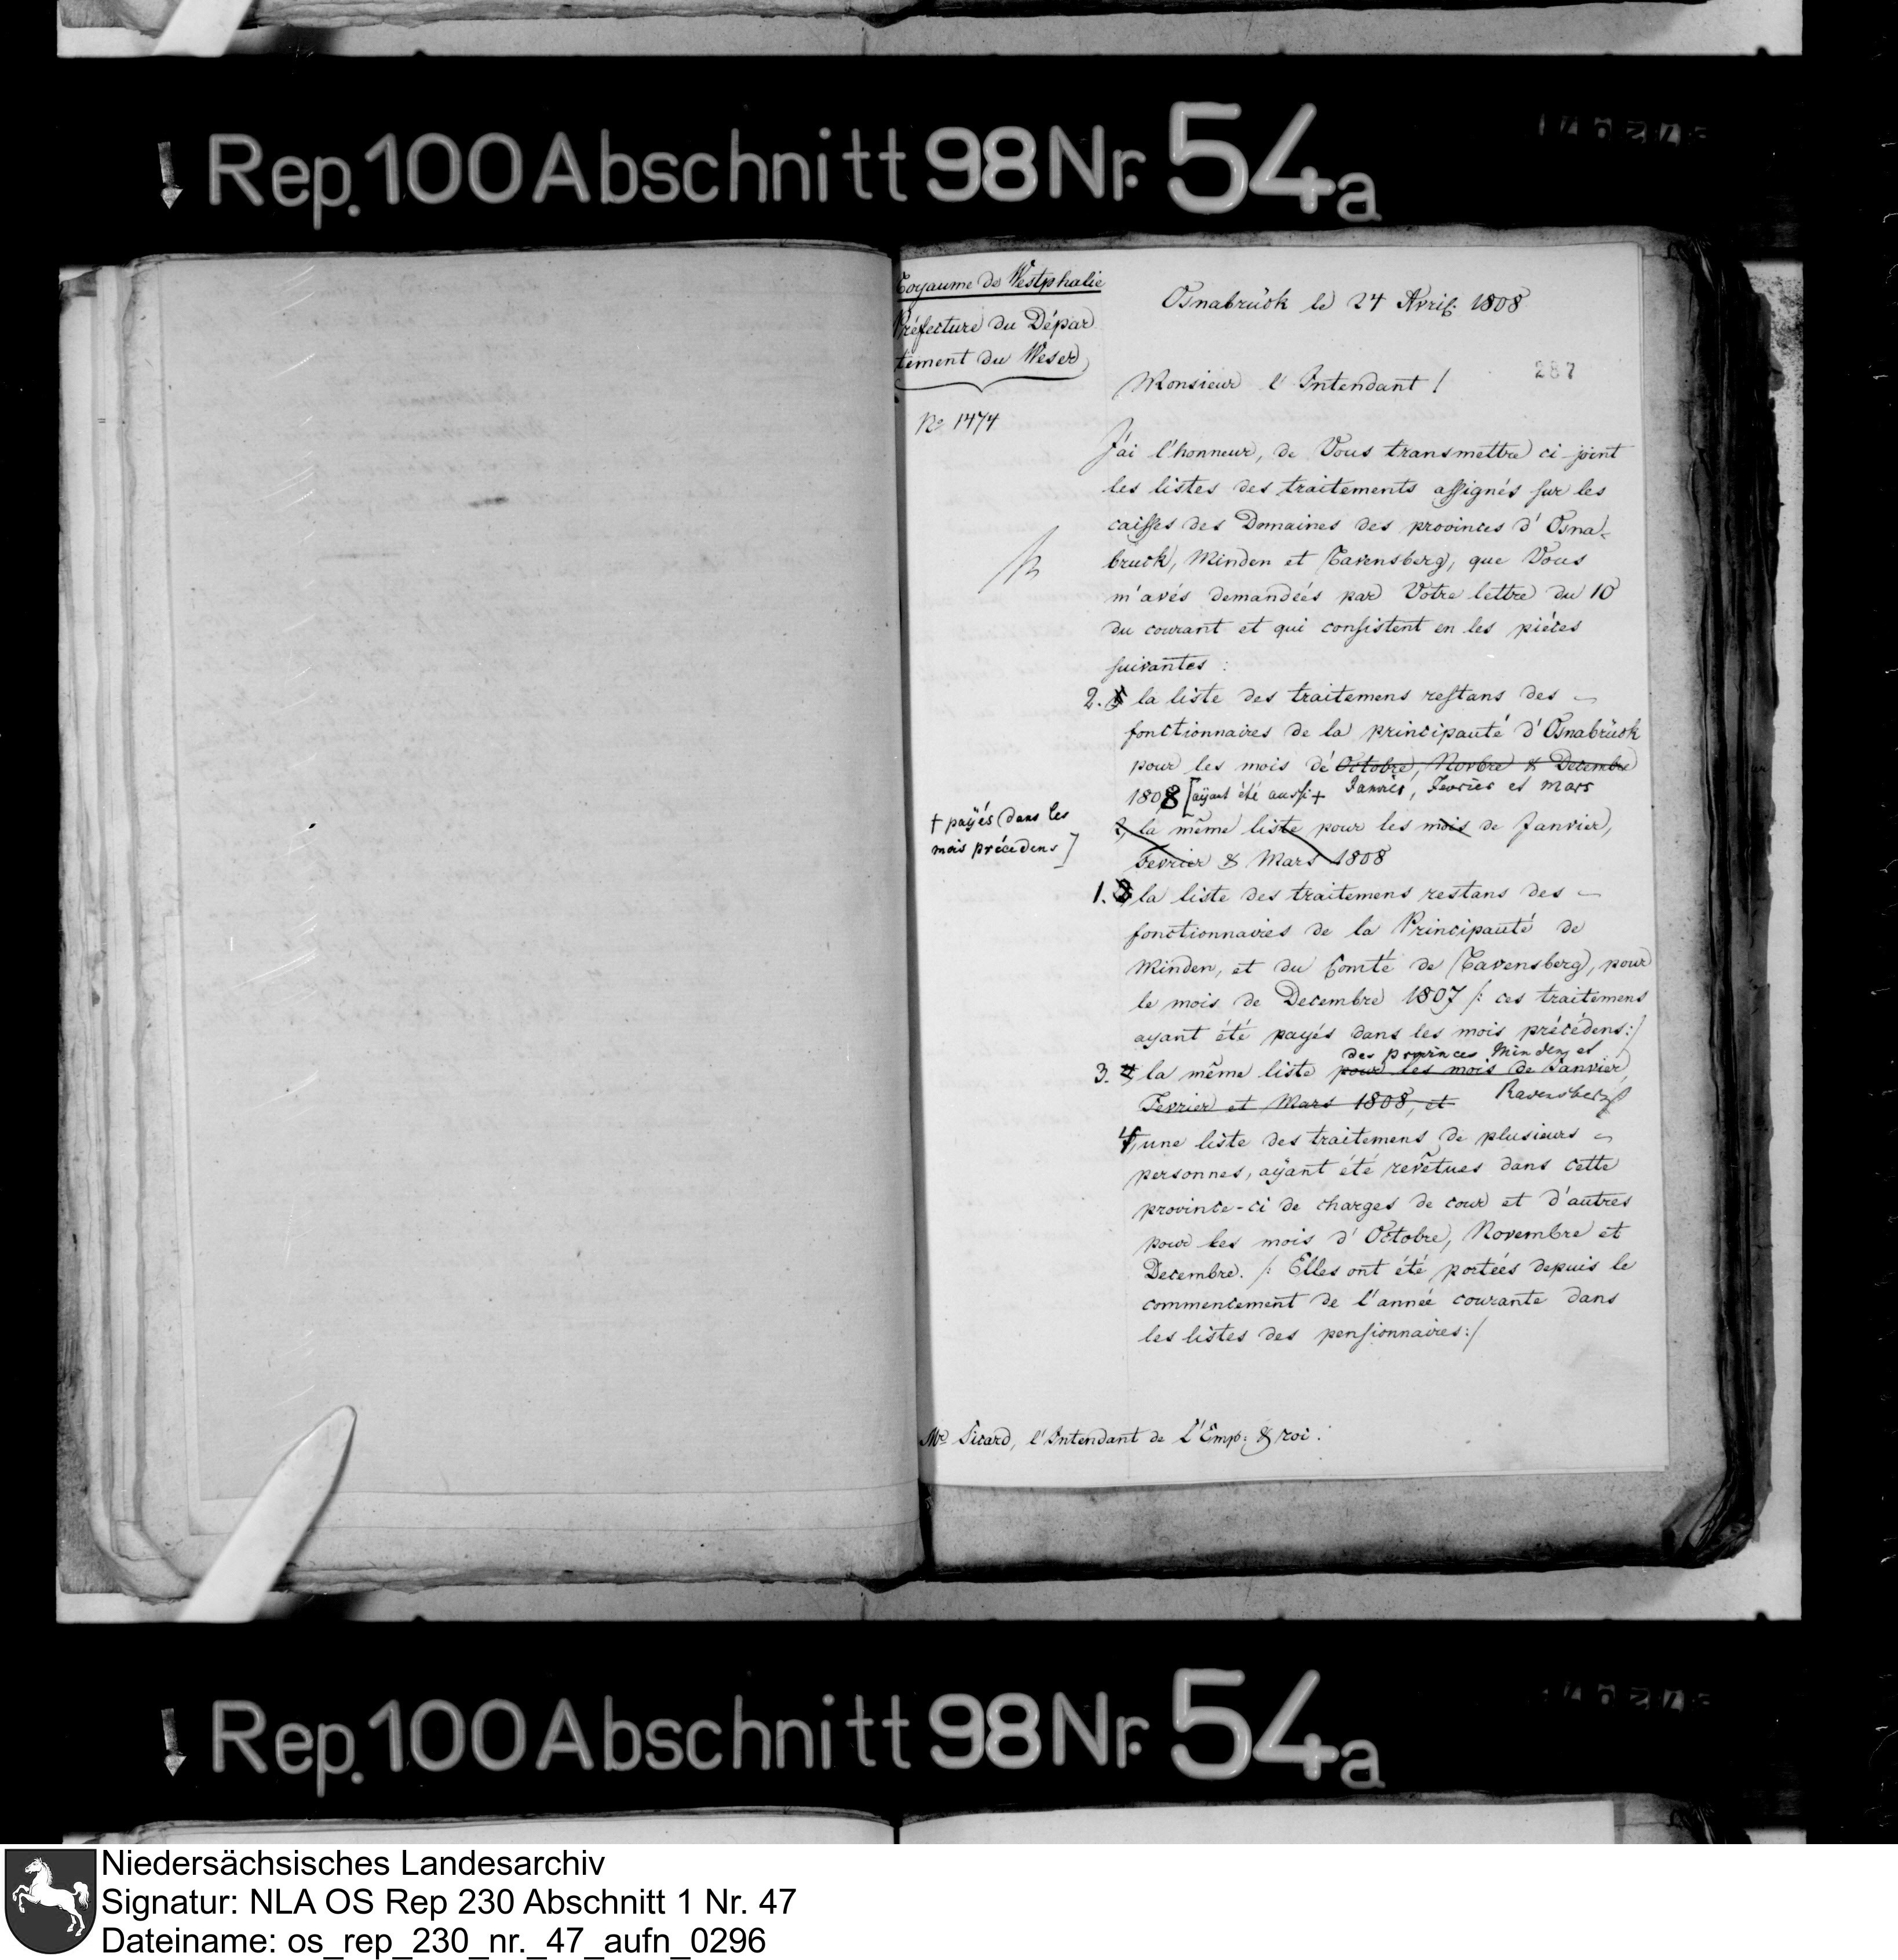 Rep. 100 Abschnitt 98 Nr. 54a
Royaume de Westphalie
Préfecture du Dépar
tement du Weser
No 1474
Osnabrück le 24 Avril 1808
287
Monsieur l'Intendant!
J'ai l'honneur, de Vous transmettre ci joint
les listes des traitements assignés sur les
caisses des Domaines des provinces d'Osna-
bruck, Minden et Ravensberg, que Vous
m'avés demandées par Votre lettre du 10
du courant et qui consistent en les piéces
suivantes :
2. la liste des traitemens restans des
fonctionnaires de la principauté d'Osnabrück
pour les mois de Octobre, Novbre & Decembre
1808 [ayant été aussi + Janvier, Fevrier et Mars
+ payés dans les
mois précedens]
2, la même liste pour les mois de Janvier,
Fevrier & Mars 1808
1. 3 la liste des traitemens restans des
fonctionnaires de la Principauté de
Minden, et du Comté de Ravensberg, pour
le mois de Decembre 1807 /: ces traitemens
ayant été payés dans les mois précédens:/
des provinces Minden et
3. 4, la même liste pour les mois de Janvier,
Fevrier et Mars 1808, et Ravensberg
4, une liste des traitemens de plusieurs
personnes, ayant été revêtues dans cette
province-ci de charges de cour et d'autres
pour les mois d'Octobre, Novembre et
Decembre. /: Elles ont été portées depuis le
commencement de l'année courante dans
les listes des pensionnaires:/
Mr Sicard, l'Intendant de L'Emp: & roi.
Rep. 100 Abschnitt 98 Nr. 54a
Niedersächsisches Landesarchiv
Signatur: NLA OS Rep 230 Abschnitt 1 Nr. 47
Dateiname: os_rep_230_nr._47_aufn_0296